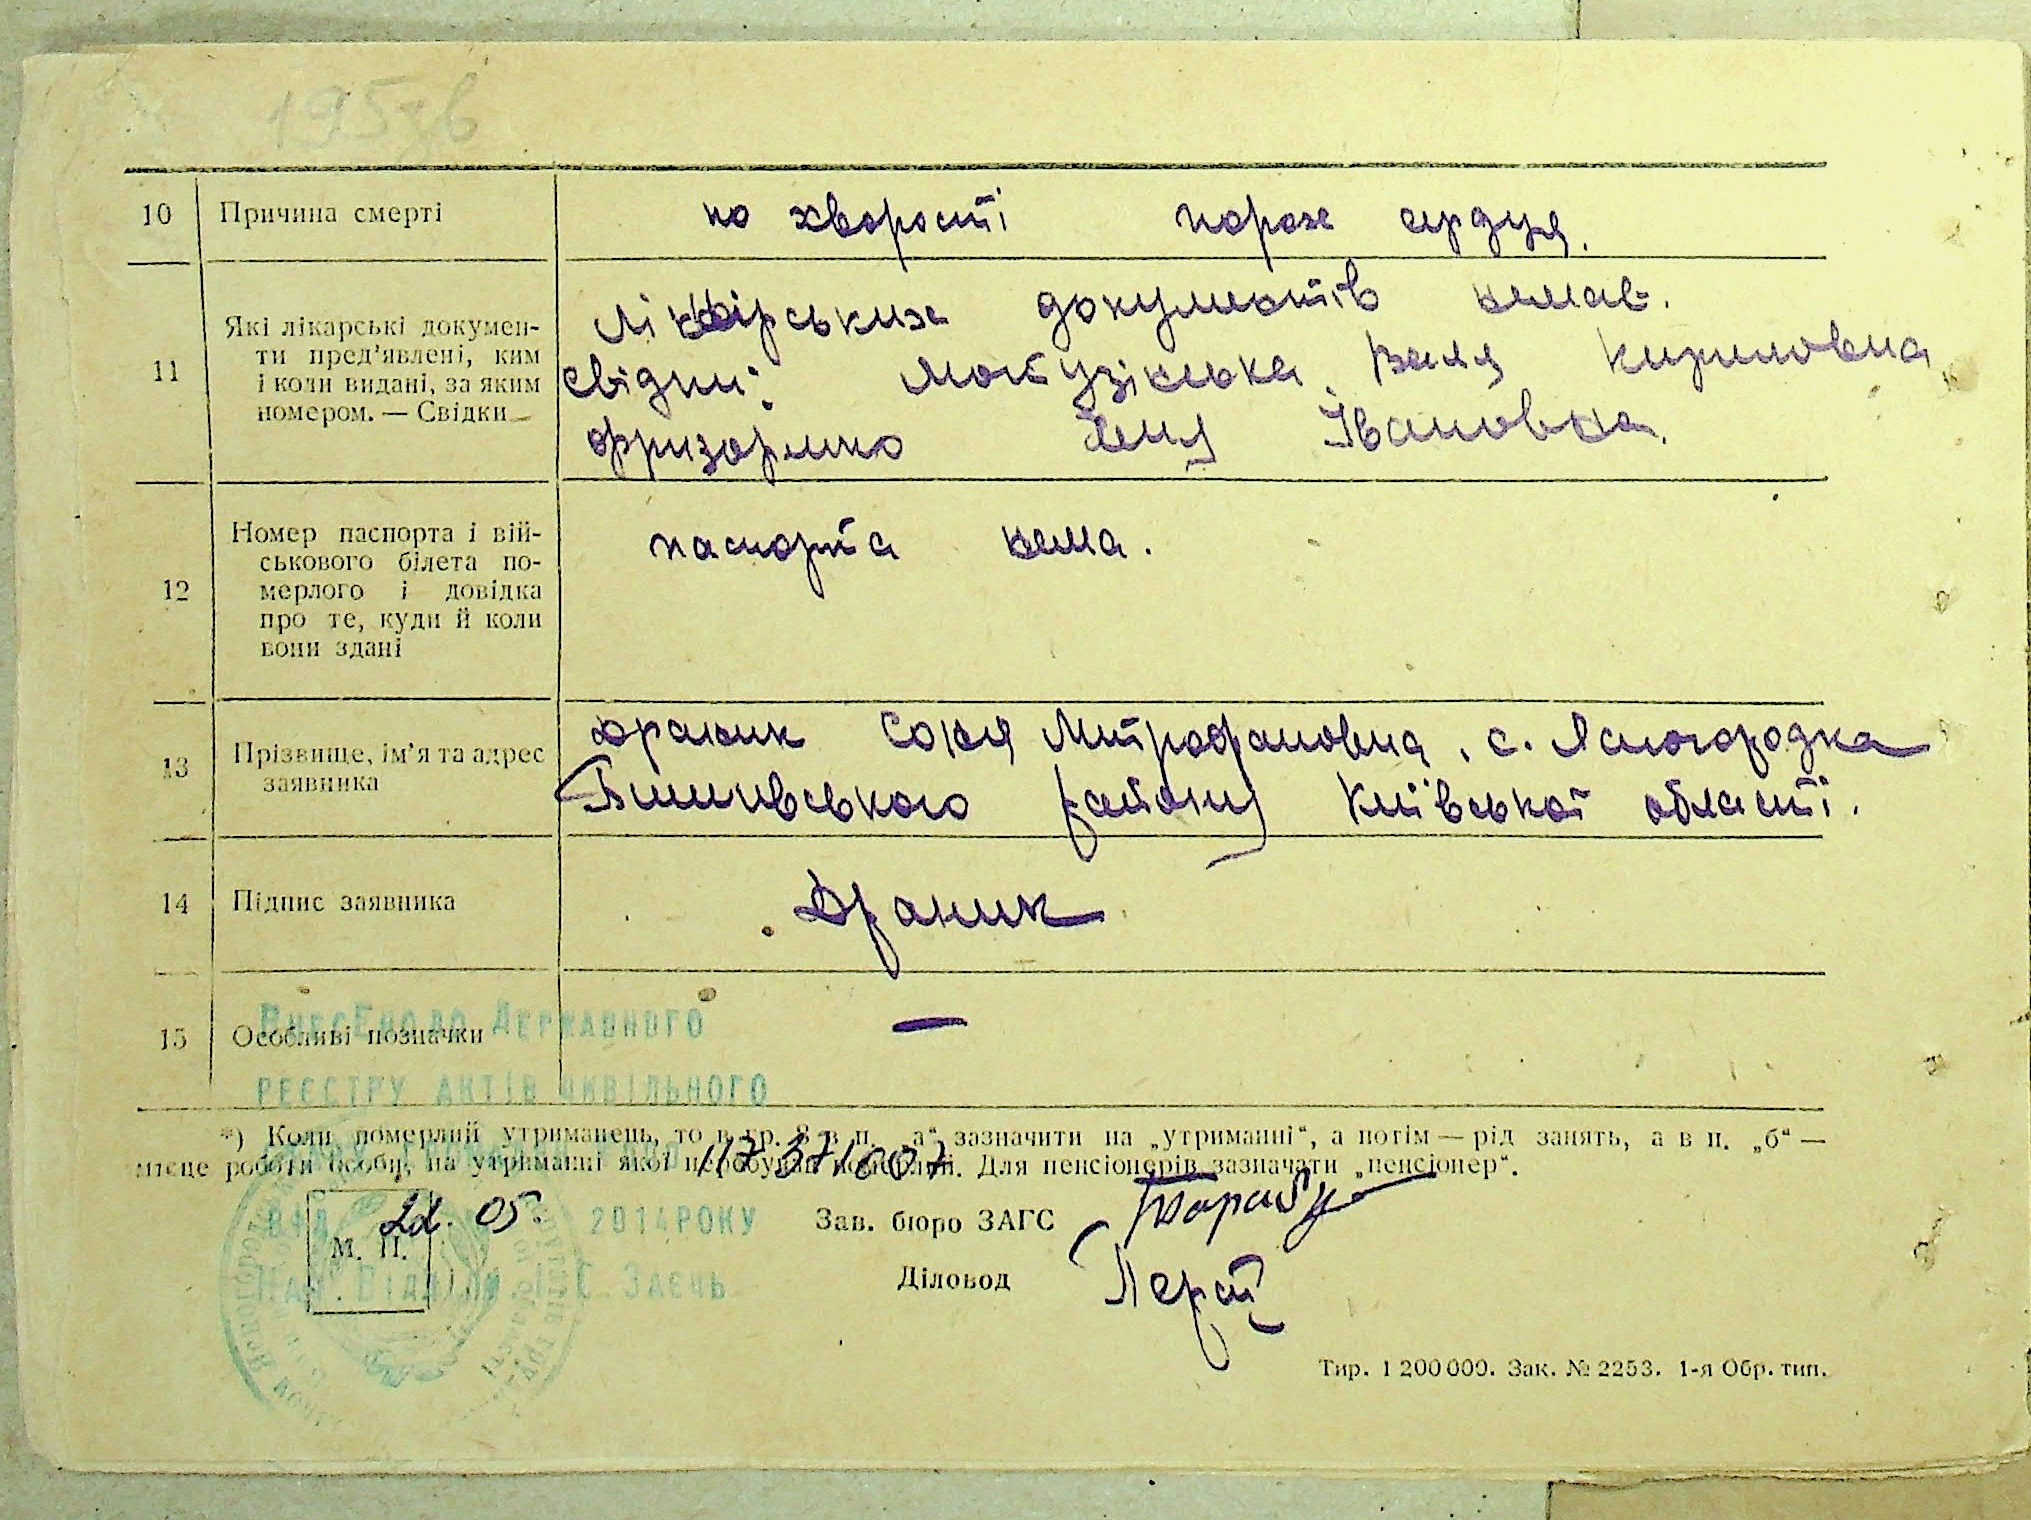 10 Причина смерті по хворості порок сердця.
11 Які лікарські документи пред'явлені, ким і коли видані, за яким номером. — Свідки
документів немає.
свідки: Валя Кириловна
Івановна.
12 Номер паспорта і військового білета померлого і довідка про те, куди й коли вони здані
паспорта нема.
13 Прізвище, ім'я та адрес заявника
Драник Соня Митрофановна, с. Ясногородка
району Київської області.
14 Підпис заявника Драник
15 Особливі позначки —
Внесено до Державного
реєстру актів цивільного
*) Коли померлий утриманець, то в гр. 8 в п. „а“ зазначити на „утриманні“, а потім — рід занять, а в п. „б“ —
місце роботи особи, на утриманні якої перебував померлий. Для пенсіонерів зазначати „пенсіонер“.
від 05. 2014 року
М. П.
Зав. бюро ЗАГС
Нач. відділу Заєць
Діловод
Тир. 1 200 000. Зак. № 2253. 1-я Обр. тип.